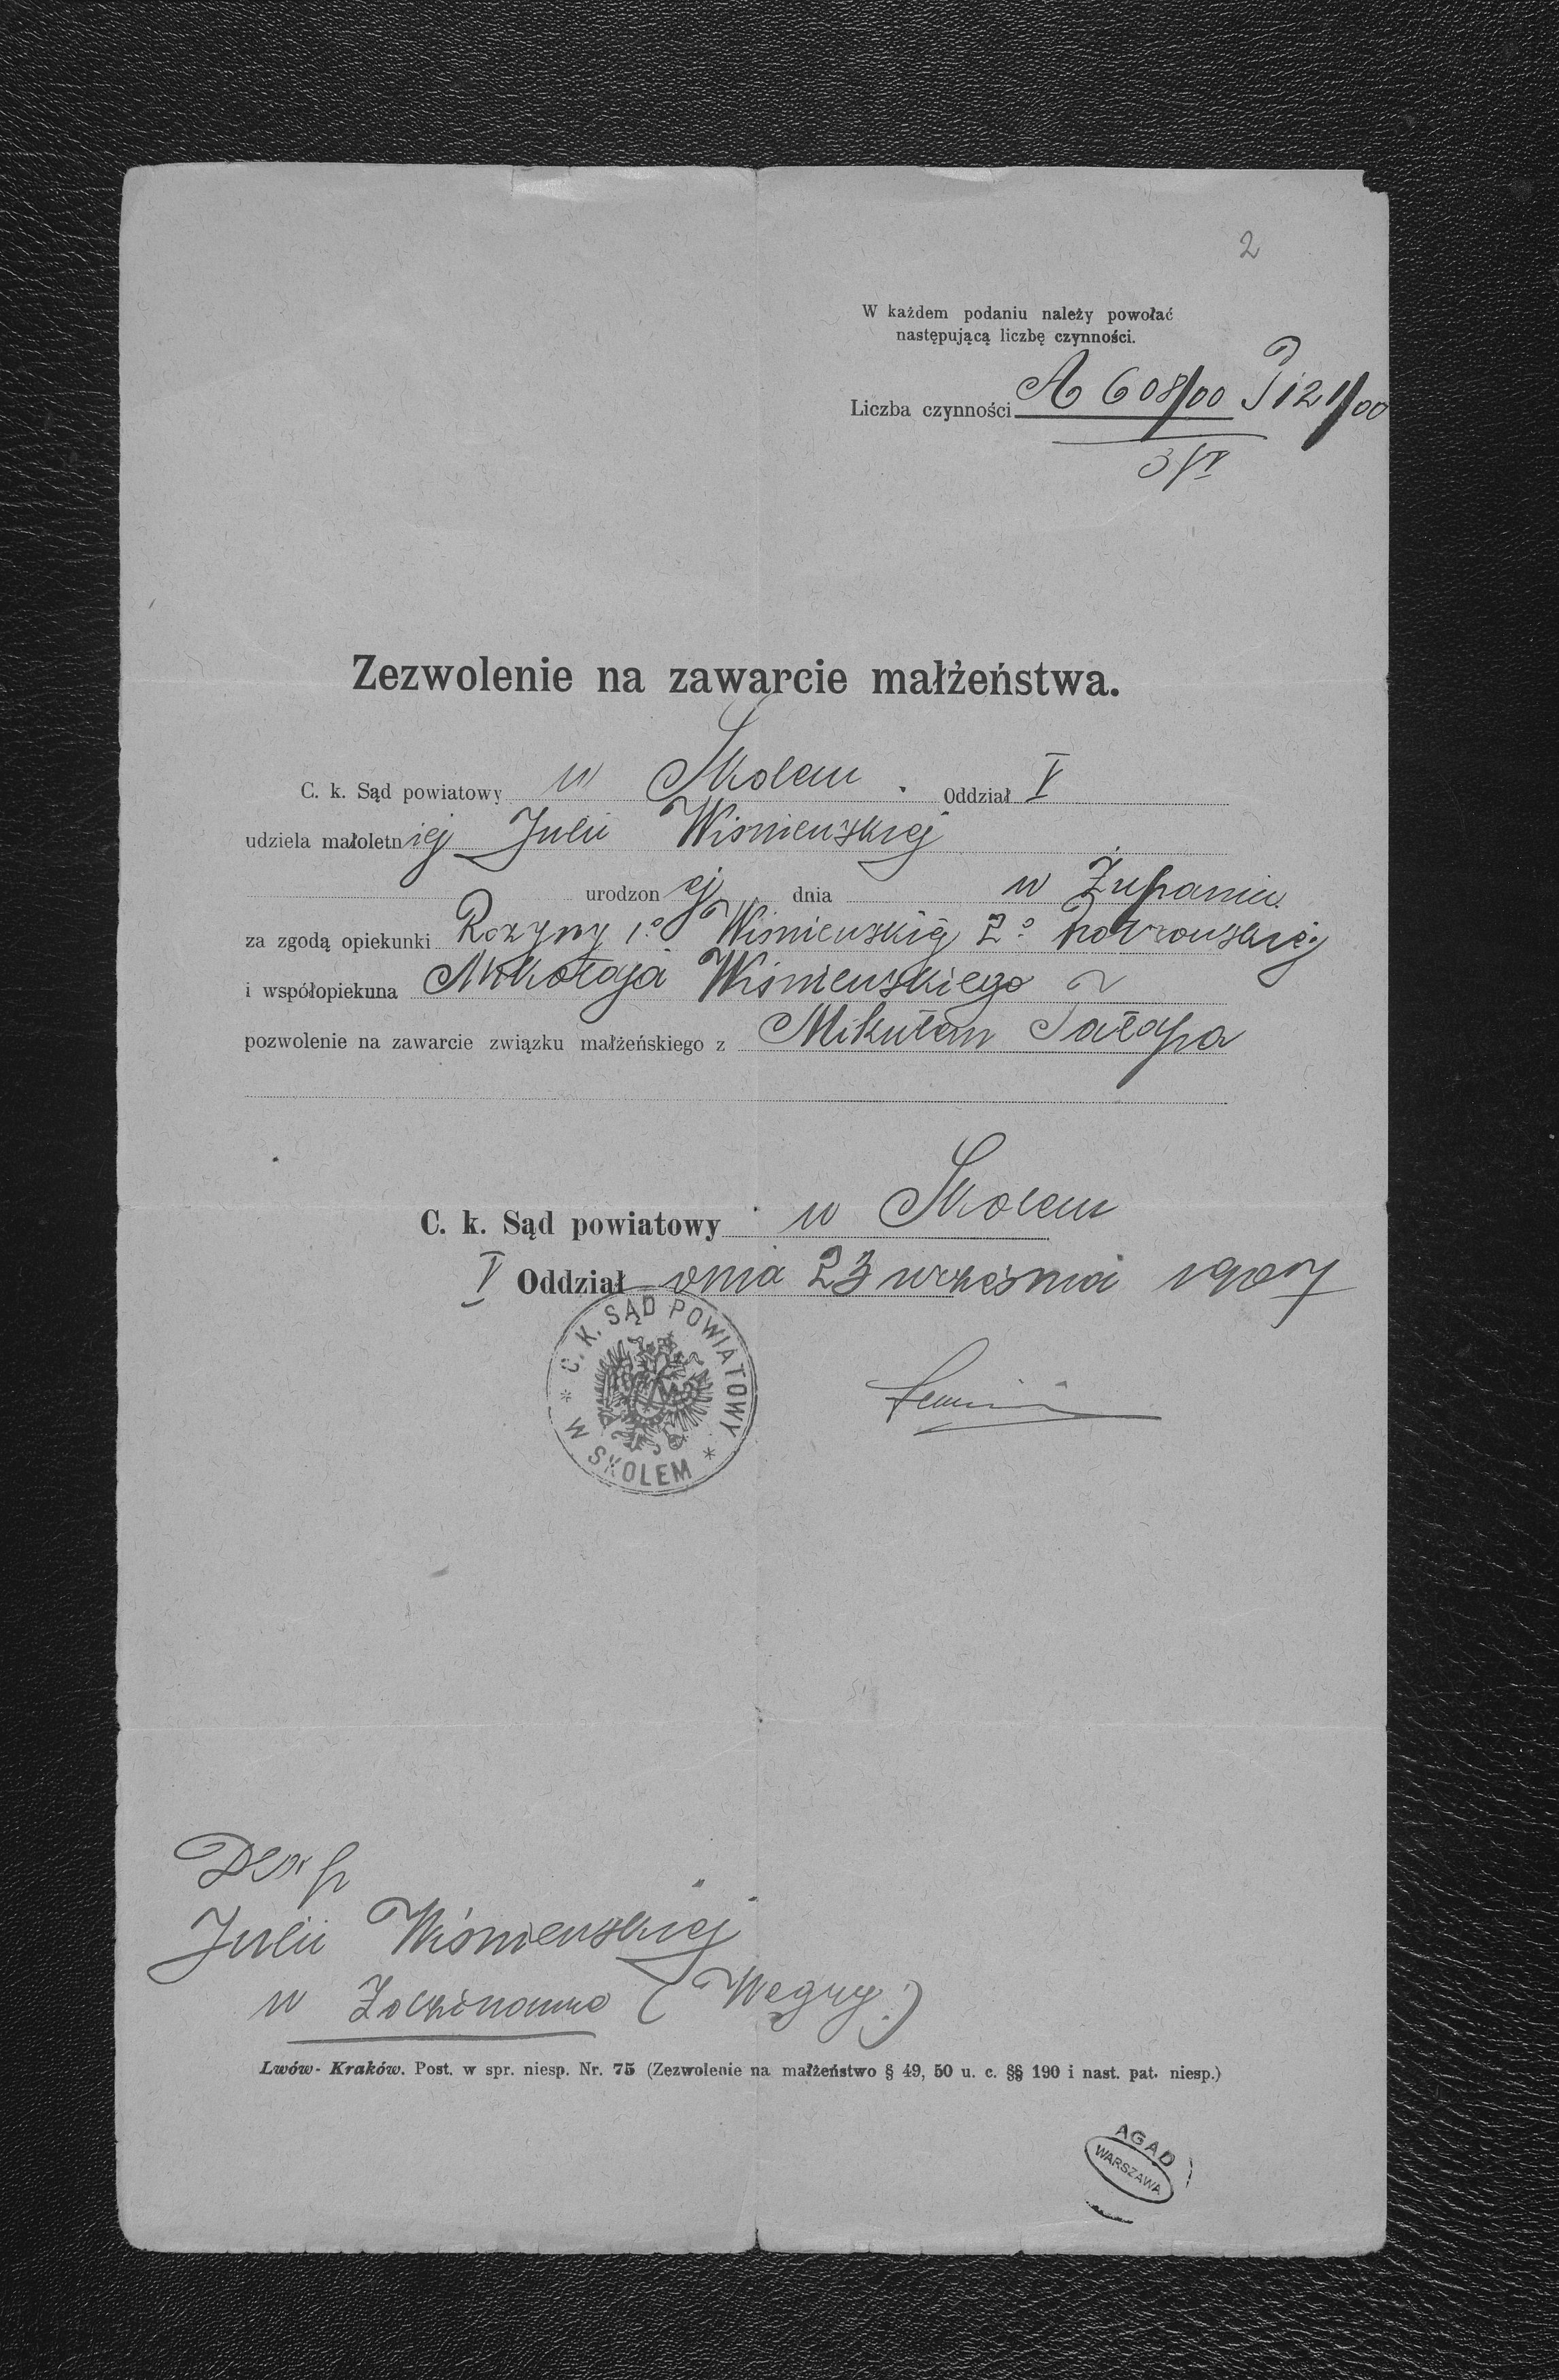 2
W każdem podaniu należy powołać
następującą liczbę czynności.
Liczba czynności A 608/00 P 121/00
3/V
Zezwolenie na zawarcie małżeństwa.
C. k. Sąd powiatowy w Skolem. Oddział V
udziela małoletniej Julii Wiśniewskiej
urodzonej dnia w Żupaniu
za zgodą opiekunki Rozyny 1º Wiśniewskiej 2º
i współopiekuna Mikołaja Wiśniewskiego
pozwolenie na zawarcie związku małżeńskiego z Mikułam Tałapa
C. k. Sąd powiatowy w Skolem
V Oddział dnia 23 września 1907
C. K. SĄD POWIATOWY
W SKOLEM
Julii Wiśniewskiej
w (Węgry.)
Lwów-Kraków. Post. w spr. niesp. Nr. 75 (Zezwolenie na małżeństwo § 49, 50 u. c. §§ 190 i nast. pat. niesp.)
AGAD
WARSZAWA